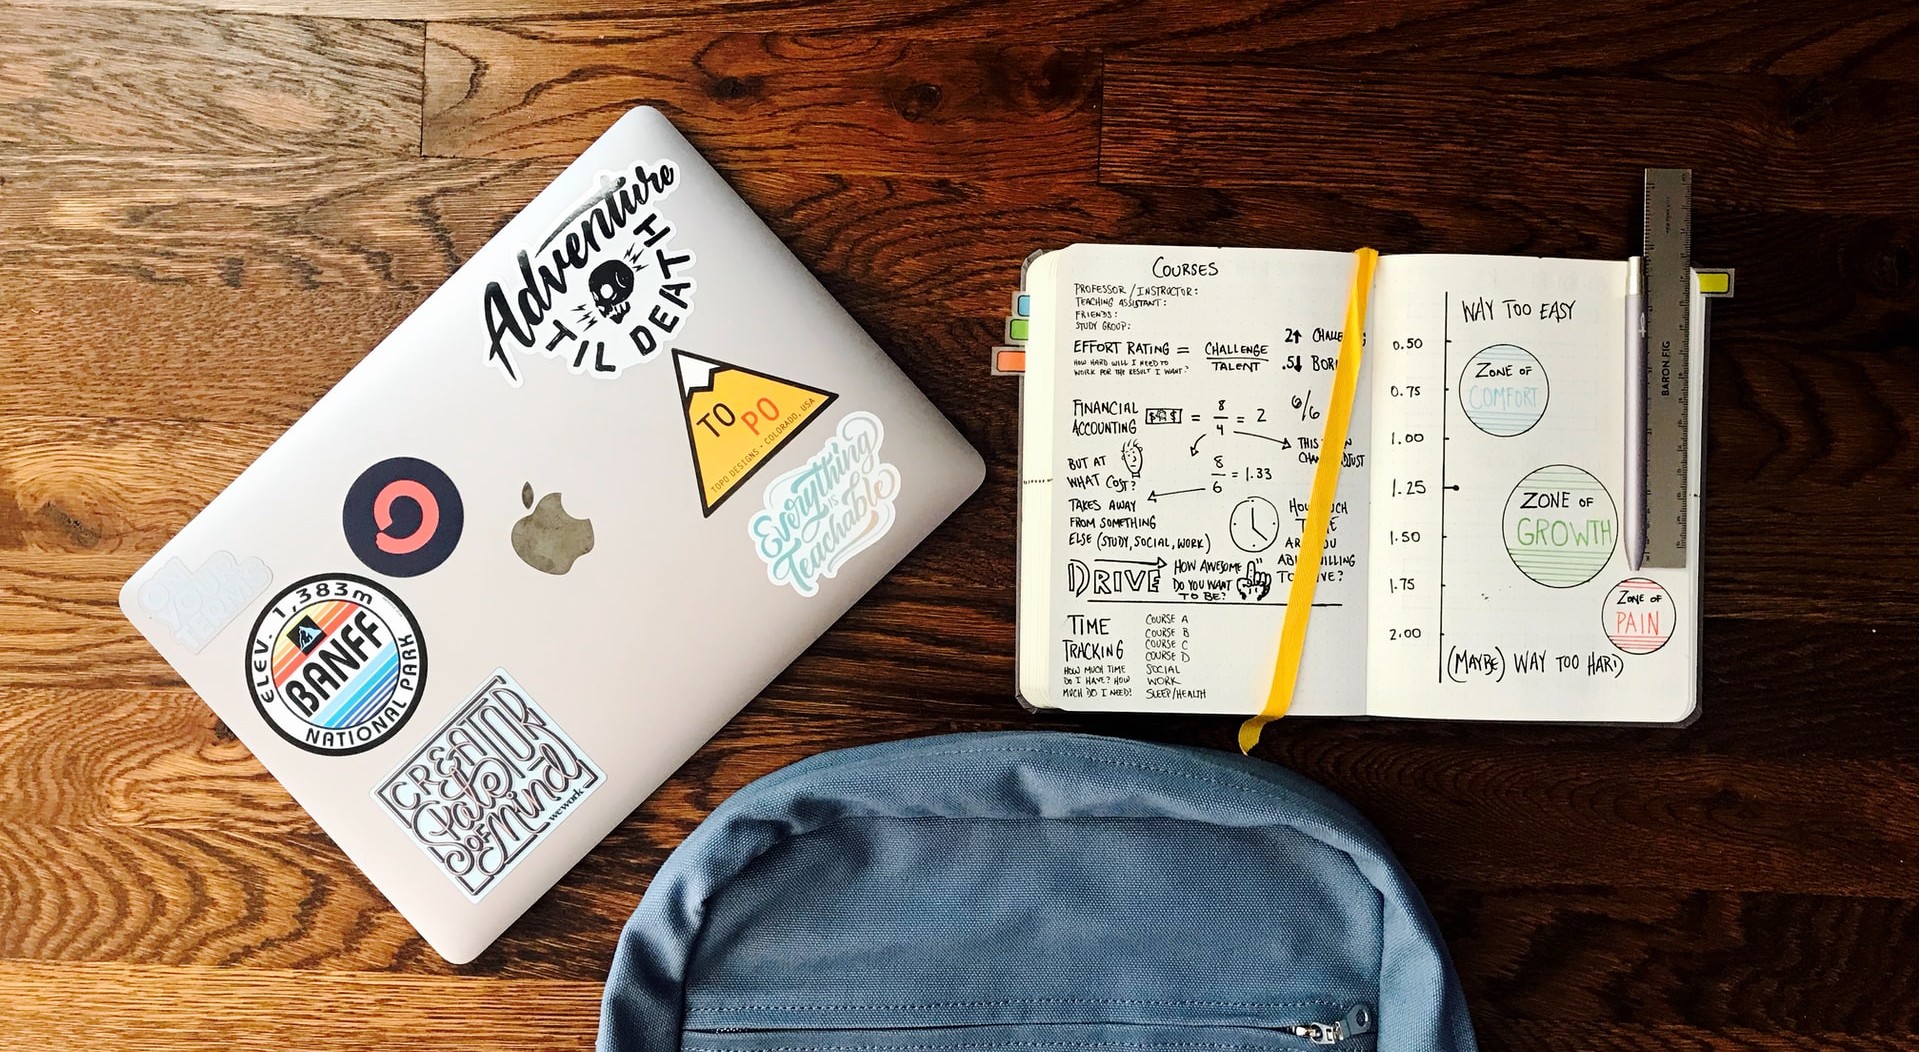 Adventure
'TIL DEATH
TO PO
TOPO DESIGNS • COLORADO, USA
Everything
IS
Teachable
ON
YOUR
TERMS
ELEV. 1,383m
BANFF
NATIONAL PARK
CREATOR
State
OF Mind
wework
COURSES
PROFESSOR / INSTRUCTOR:
TEACHING ASSISTANT:
FRIENDS:
STUDY GROUP:
EFFORT RATING = CHALLENGE
TALENT
HOW HARD WILL I NEED TO
WORK FOR THE RESULT I WANT?
2↑
.5↓
FINANCIAL
ACCOUNTING
= 8/4 = 2
6/6
THIS
8/6 = 1.33
BUT AT
WHAT COST?
TAKES AWAY
FROM SOMETHING
ELSE (STUDY, SOCIAL, WORK)
DRIVE
HOW AWESOME
DO YOU WANT
TO BE?
TIME
TRACKING
HOW MUCH TIME
DO I HAVE? HOW
MUCH DO I NEED?
COURSE A
COURSE B
COURSE C
COURSE D
SOCIAL
WORK
SLEEP/HEALTH
WAY TOO EASY
0.50
0.75
1.00
1.25
1.50
1.75
2.00
ZONE OF
COMFORT
ZONE OF
GROWTH
ZONE OF
PAIN
(MAYBE) WAY TOO HARD
BARON FIG